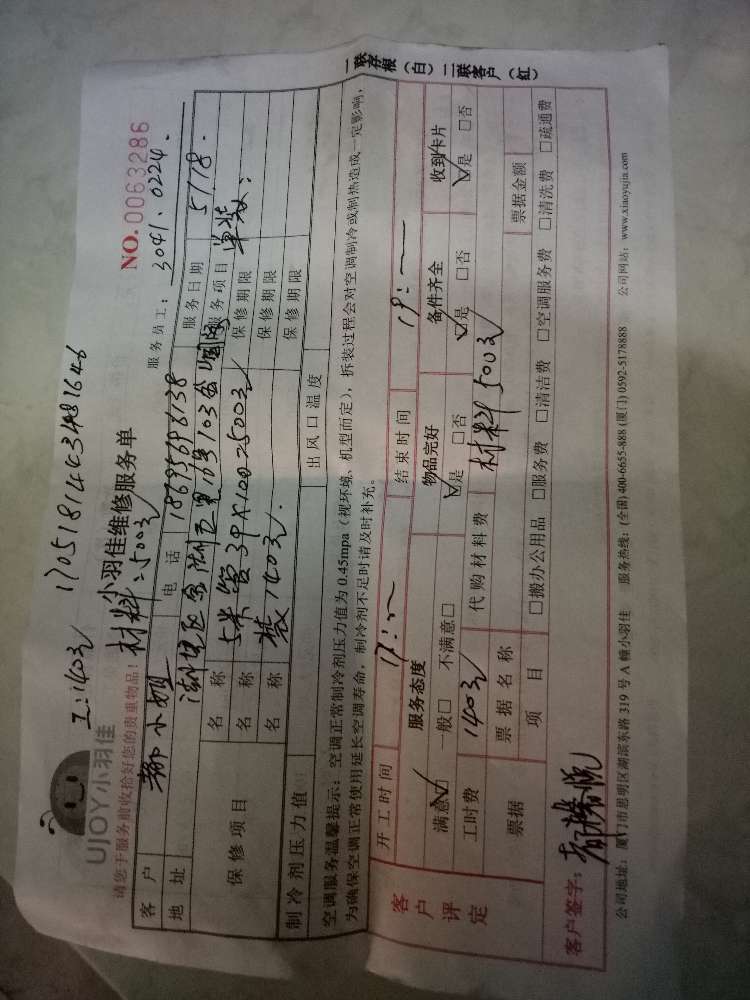 工:140元 170518144234181646
UJOY小羽佳
小羽佳维修服务单
NO.0063286
请您于服务前收拾好您的贵重物品!
材料:500元
服务员工: 3041.0224.
客户 小姐 电话 服务日期 5/18.
地址 服务项目 单装
保修项目 名称 5米管3P×100=500元 保修期限
名称 装140元 保修期限
名称 保修期限
制冷剂压力值: 出风口温度
空调服务温馨提示: 空调正常制冷剂压力值为0.45mpa(视环境、机型而定),拆装过程会对空调制冷或制热造成一定影响,
为确保空调正常使用延长空调寿命,制冷剂不足时请及时补充。
客户评定
开工时间 结束时间
服务态度 物品完好 备件齐全 收到卡片
满意☑ 一般□ 不满意□ ☑是 □否 ☑是 □否 ☑是 □否
工时费 140元 代购材料费 材料500元
票据 票据名称 票据金额
项目 □搬办公用品 □服务费 □清洁费 □空调服务费 □清洗费 □疏通费
客户签字:
公司地址: 厦门市思明区湖滨东路319号A幢小羽佳 服务热线: (全国)400-6655-888 (厦门)0592-5178888 公司网站: www.xiaoyujia.com
一联存根(白) 二联客户(红)